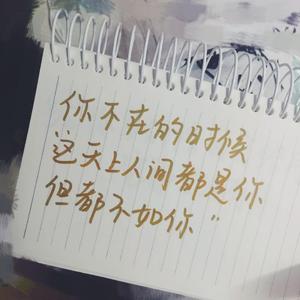 你不在的时候
这天上人间都是你
但都不如你”